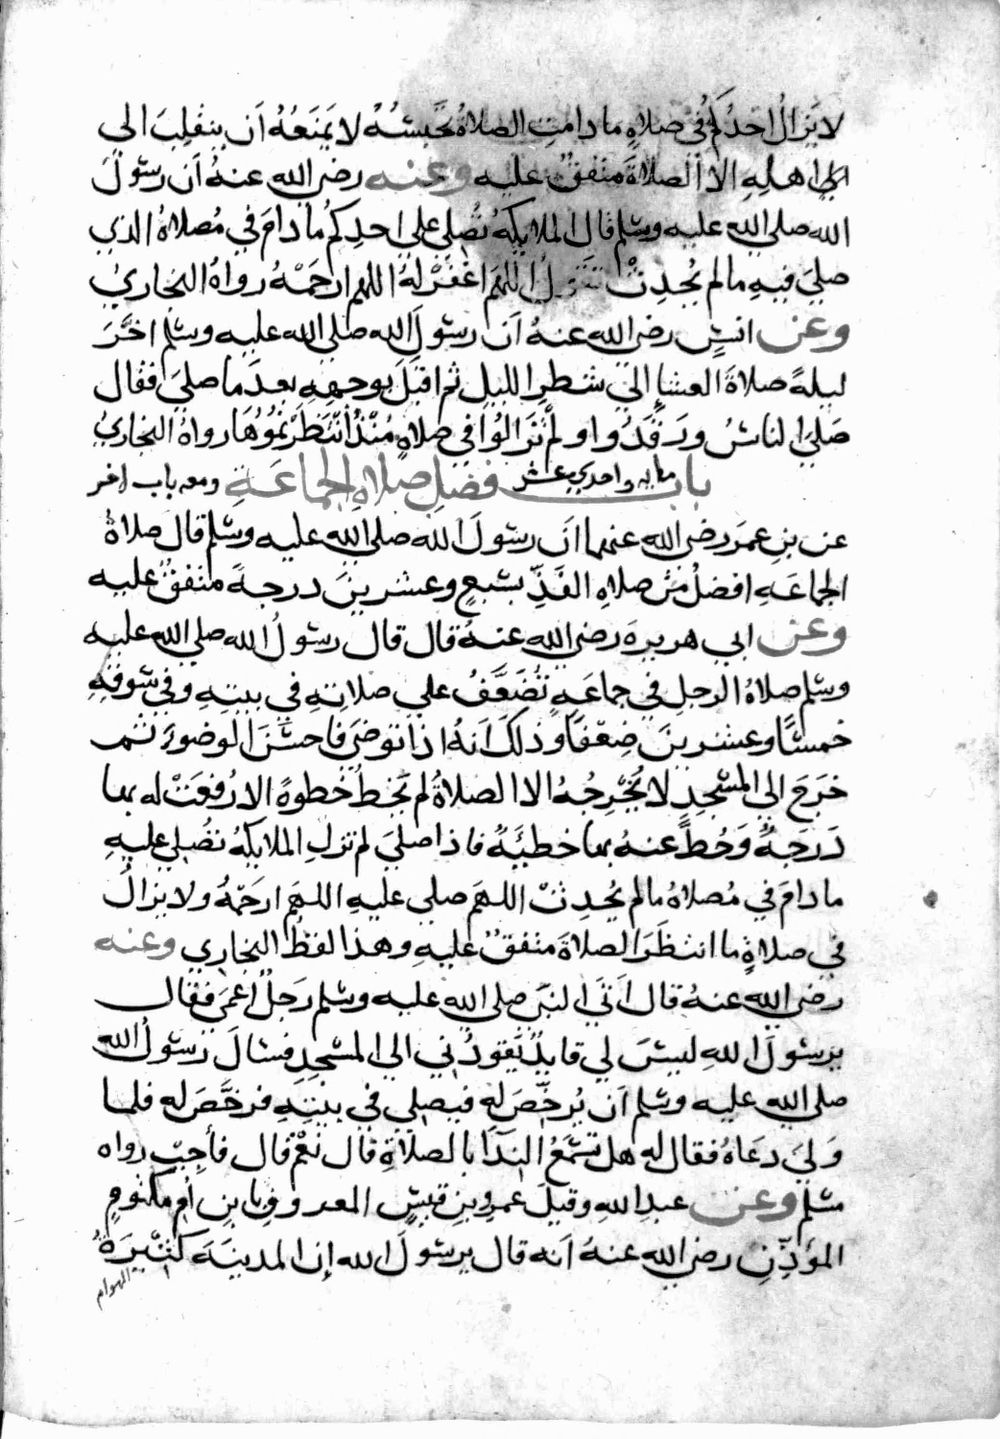 لا يَزَالُ احَدُكُمْ في صلاةٍ ما دامتِ الصلاةُ تحبِسُهُ لا يَمنَعُهُ اَن ينقلِبَ الى
الى اهلِهِ الا الصلاةَ متفقٌ عليه وعنه رضي الله عنهُ اَن رسُولَ
الله صلى الله عليه وسلم قال الملايكةُ تُصلي على احدِكُم ما دامَ في مُصلاهُ الذي
صلىَ فيهِ مالم يُحدِثْ تقولُ اللهمَ اغفِرْ لهُ اللهم ارحَمْهُ رواهُ البخاريُ
وعن انسٍ رضي الله عنهُ اَن رسُولَ الله صلى الله عليه وسلم اخَّرَ
ليلةً صلاةَ العشاءِ إلى شطرِ الليل ثم اقبلَ بوجهِهِ بعدَ ما صلىَ فقال
صَلىَ الناسُ ورَقَدُوا ولم تزالُوا في صلاةٍ مُنْذُ انْتَظَرْتمُوُهَا رواهُ البخاريُ
باب مايه واحدي عشر فضلِ صلاةِ الجماعَةِ ومعه باب اخر
عن بنِ عمرَ رضي الله عنهما اَن رسُولَ الله صلى الله عليه وسلم قال صلاةُ
الجماعَةِ افضلُ مِنْ صلاةِ الفَذِّ بسَبعٍ وعشرينَ درجةً متفقٌ عليه
وعن ابي هريرةَ رضي الله عنهُ قال قال رسُولُ الله صلى الله عليه
وسلم صلاةُ الرجلِ في جماعَةٍ تُضَعَّفُ على صلاتِهِ في بيتِهِ وفي سُوقِهِ
خمسًا وعشرينَ ضِعْفًا وذلكَ اَنهُ اذا توضىَ فاَحسَنَ الوضوءَ ثم
خرَجَ الى المسْجدِ لا يُخْرِجُهُ الا الصلاةُ لم يَخطُ خُطوةً الا رُفعَتْ له بها
دَرَجَةٌ وَحُطَّ عنهُ بها خطيَةٌ فاذا صلىَ لم تزلِ الملايكةُ تُصَلي عليهِ
ما دامَ في مُصلاهُ مالم يُحدِثْ اللهمَ صلى عليهِ اللهمَ ارحَمْهُ ولا يزالُ
في صلاةٍ ما انتظَرَ الصلاةَ متفقٌ عليهِ وهذا لفظُ البخاري وعنه
رضي الله عنهُ قال اَتىَ النبيَ صلى الله عليه وسلم رَجلٌ اَعمىَ فقال
يرسُولَ اللهِ ليسَ لي قايدٌ يَقودُني الى المسْجدِ فسَالَ رسُولَ الله
صلى الله عليه وسلم اَن يُرخِّصَ لهِ فيصلي في بيتِهِ فرخَّصَ له فلما
وَلىَ دعَاهُ فقال له هل تَسْمَعُ النِدَا بالصلاةِ قال نعَمْ قال فأَجِبْ رواه
مسْلم وعن عبدِ اللهِ وقيلَ عمرِو بنِ قيسٍ المعروفِ بابنِ اُمِ مكتومٍ
المؤذِّنِ رضي الله عنهُ اَنه قال يرسُولَ الله إن المدينةَ كثيرَةُ
الهوام